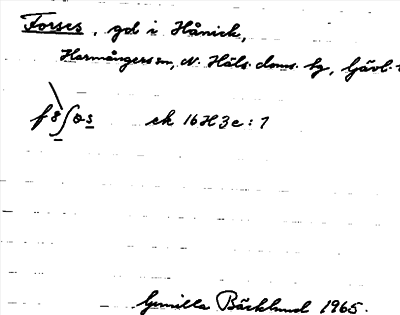 Forses, gd i Hånick,
Harmångers sn, N. Häls. doms. hg, Gävl.
ek 16H3e:1
Gunilla Bäcklund 1965.